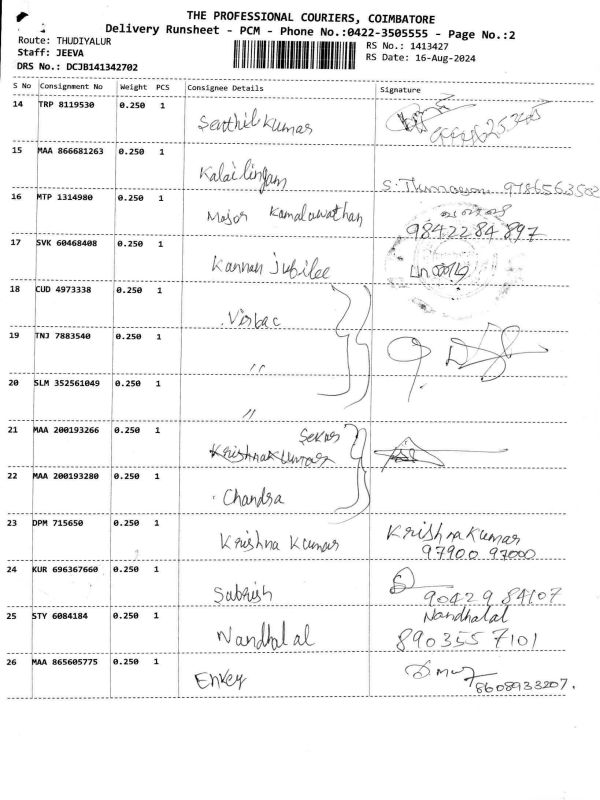 THE PROFESSIONAL COURIERS, COIMBATORE
Delivery Runsheet - PCM - Phone No.:0422-3505555 - Page No.:2
Route: THUDIYALUR
RS No.: 1413427
Staff: JEEVA
RS Date: 16-Aug-2024
DRS No.: DCJB141342702
S No Consignment No Weight PCS Consignee Details Signature
14 TRP 8119530 0.250 1 Senthil kumar
15 MAA 866681263 0.250 1 Kalailingam
16 MTP 1314980 0.250 1 Major Kamalawathan 9842284897
17 SVK 60468408 0.250 1 Kannan jubilee
18 CUD 4973338 0.250 1 Virbac
19 TNJ 7883540 0.250 1 "
20 SLM 352561049 0.250 1 "
21 MAA 200193266 0.250 1 Sekar
22 MAA 200193280 0.250 1 Chandra
23 DPM 715650 0.250 1 Krishna Kumar Krishna Kumar
97900 97000
24 KUR 696367660 0.250 1 Sabrish 90429 84107
25 STY 6084184 0.250 1 Nandhalal Nandhalal
890355 7101
26 MAA 865605775 0.250 1 Enkey 8608933207.